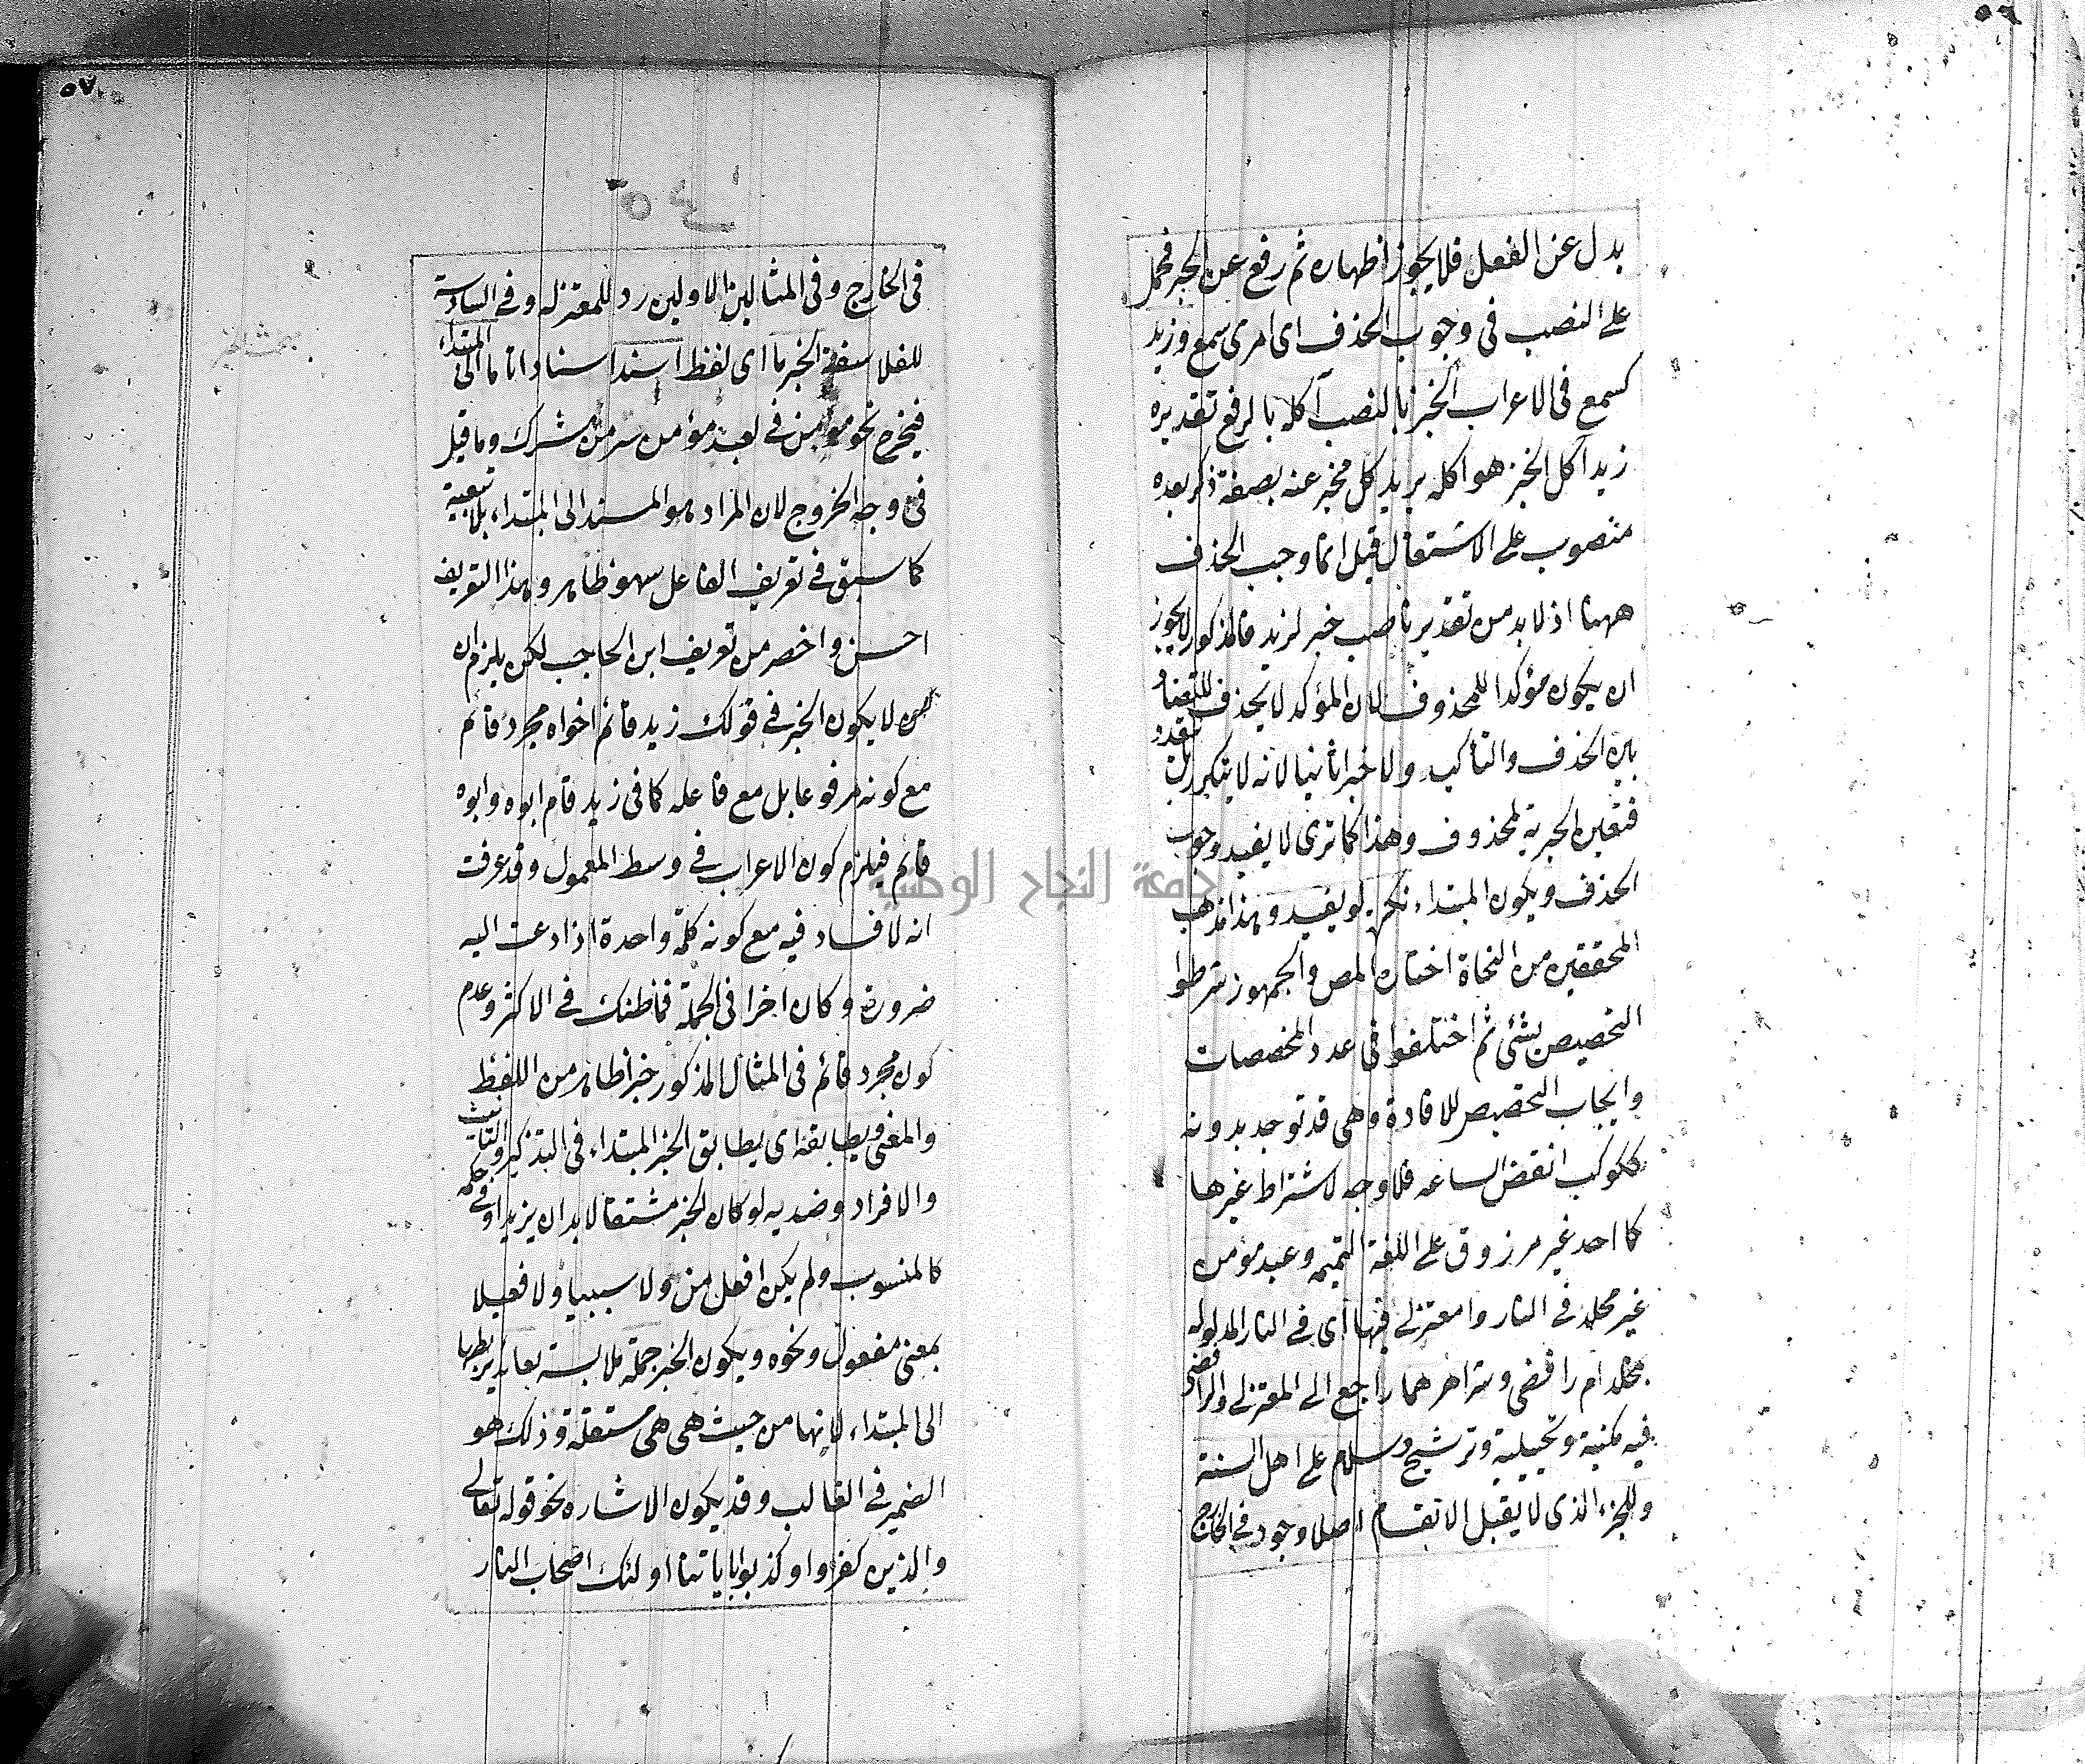 ٥٦
بدل عن الفعل فلا يجوز اظهاره ثم رفع عن الجبر فحمل
على النصب فى وجوب الحذف اى امرى سمع وزيد
كسمع فى الاعراب الخبز بالنصب آكله بالرفع تقديره
زيد آكل الخبز هو اكله يريد كل مخبر عنه بصفة ذكر بعده
منصوب على الاشتغال قيل انما وجب الحذف
ههنا اذ لابد من تقدير ناصب خبر لزيد فالمذكور لا يجوز
ان يكون مؤكدا للمحذوف لان المؤكد لا يحذف للتضاد
بين الحذف والتأكيد ولا خبرا ثانيا لانه لا يتكرر بل
فتعين الخبرية لمحذوف وهذا كما ترى لا يفيد وجوب
الحذف ويكون المبتداء نكرة لو يفيد وهذا مذهب
المحققين من النحاة اختاره المص والجمهور شرطوا
التخصيص بشئ ثم اختلفوا فى عدد المخصصات
وايجاب التخصيص للافادة وهى قد توجد بدونه
ككوكب انقض الساعه فلا وجه لاشتراط غيرها
كما احد غير مرزوق على اللغة التميميه وعبد مؤمن
غير مخلد فى النار وامعتزلى فيها اى فى النار المدلوله
بمخلد ام رافضى وشر اهر هما راجع الى المعتزلى والرافضى
فيه مكنية وتخييلية وترشيح وسلام على اهل السنة
وللجزء الذى لا يقبل الانقسام اصلا وجود فى الخارج
٥٧
فى الخارج وفى المثالين الاولين رد للمعتزله وفى السادسة
للفلاسفة الخبر ما اى لفظ اسند اسنادا تاما الى المبتداء
فيخرج نحو مؤمن فى لعبد مؤمن من مشرك وما قيل
فى وجه الخروج لان المراد هو المسند الى المبتداء بلا تبعية
كما سبق فى تعريف الفاعل سهو ظاهر وهذا التعريف
احسن واخصر من تعريف ابن الحاجب لكن يلزم ان
لا يكون الخبر فى قولك زيد قائم اخواه مجرد قائم
مع كونه مرفوعا بل مع فاعله كما فى زيد قام ابوه وابوه
قائم فيلزم كون الاعراب فى وسط المعمول وقد عرفت
انه لا فساد فيه مع كونه كلمة واحدة اذا دعت اليه
ضرورة وكان اخرا فى الجملة فما ظنك فى الاكثر وعدم
كون مجرد قائم فى المثال المذكور خبرا ظاهر من اللفظ
والمعنى ويطابقه اى يطابق الخبر المبتداء فى التذكير والتأنيث
والافراد وضديه لو كان الخبر مشتقا لابد ان يزيد او فى حكمه
كالمنسوب ولم يكن افعل من ولا سببيا ولا فعيلا
بمعنى مفعول ونحوه ويكون الخبر جملة ملابسة بعائد يربطها
الى المبتداء لانها من حيث هى هى مستقلة وذلك هو
الضمير فى الغالب وقد يكون الاشاره نحو قوله تعالى
والذين كفروا وكذبوا باياتنا اولئك اصحاب النار
جامعة النجاح الوطنية